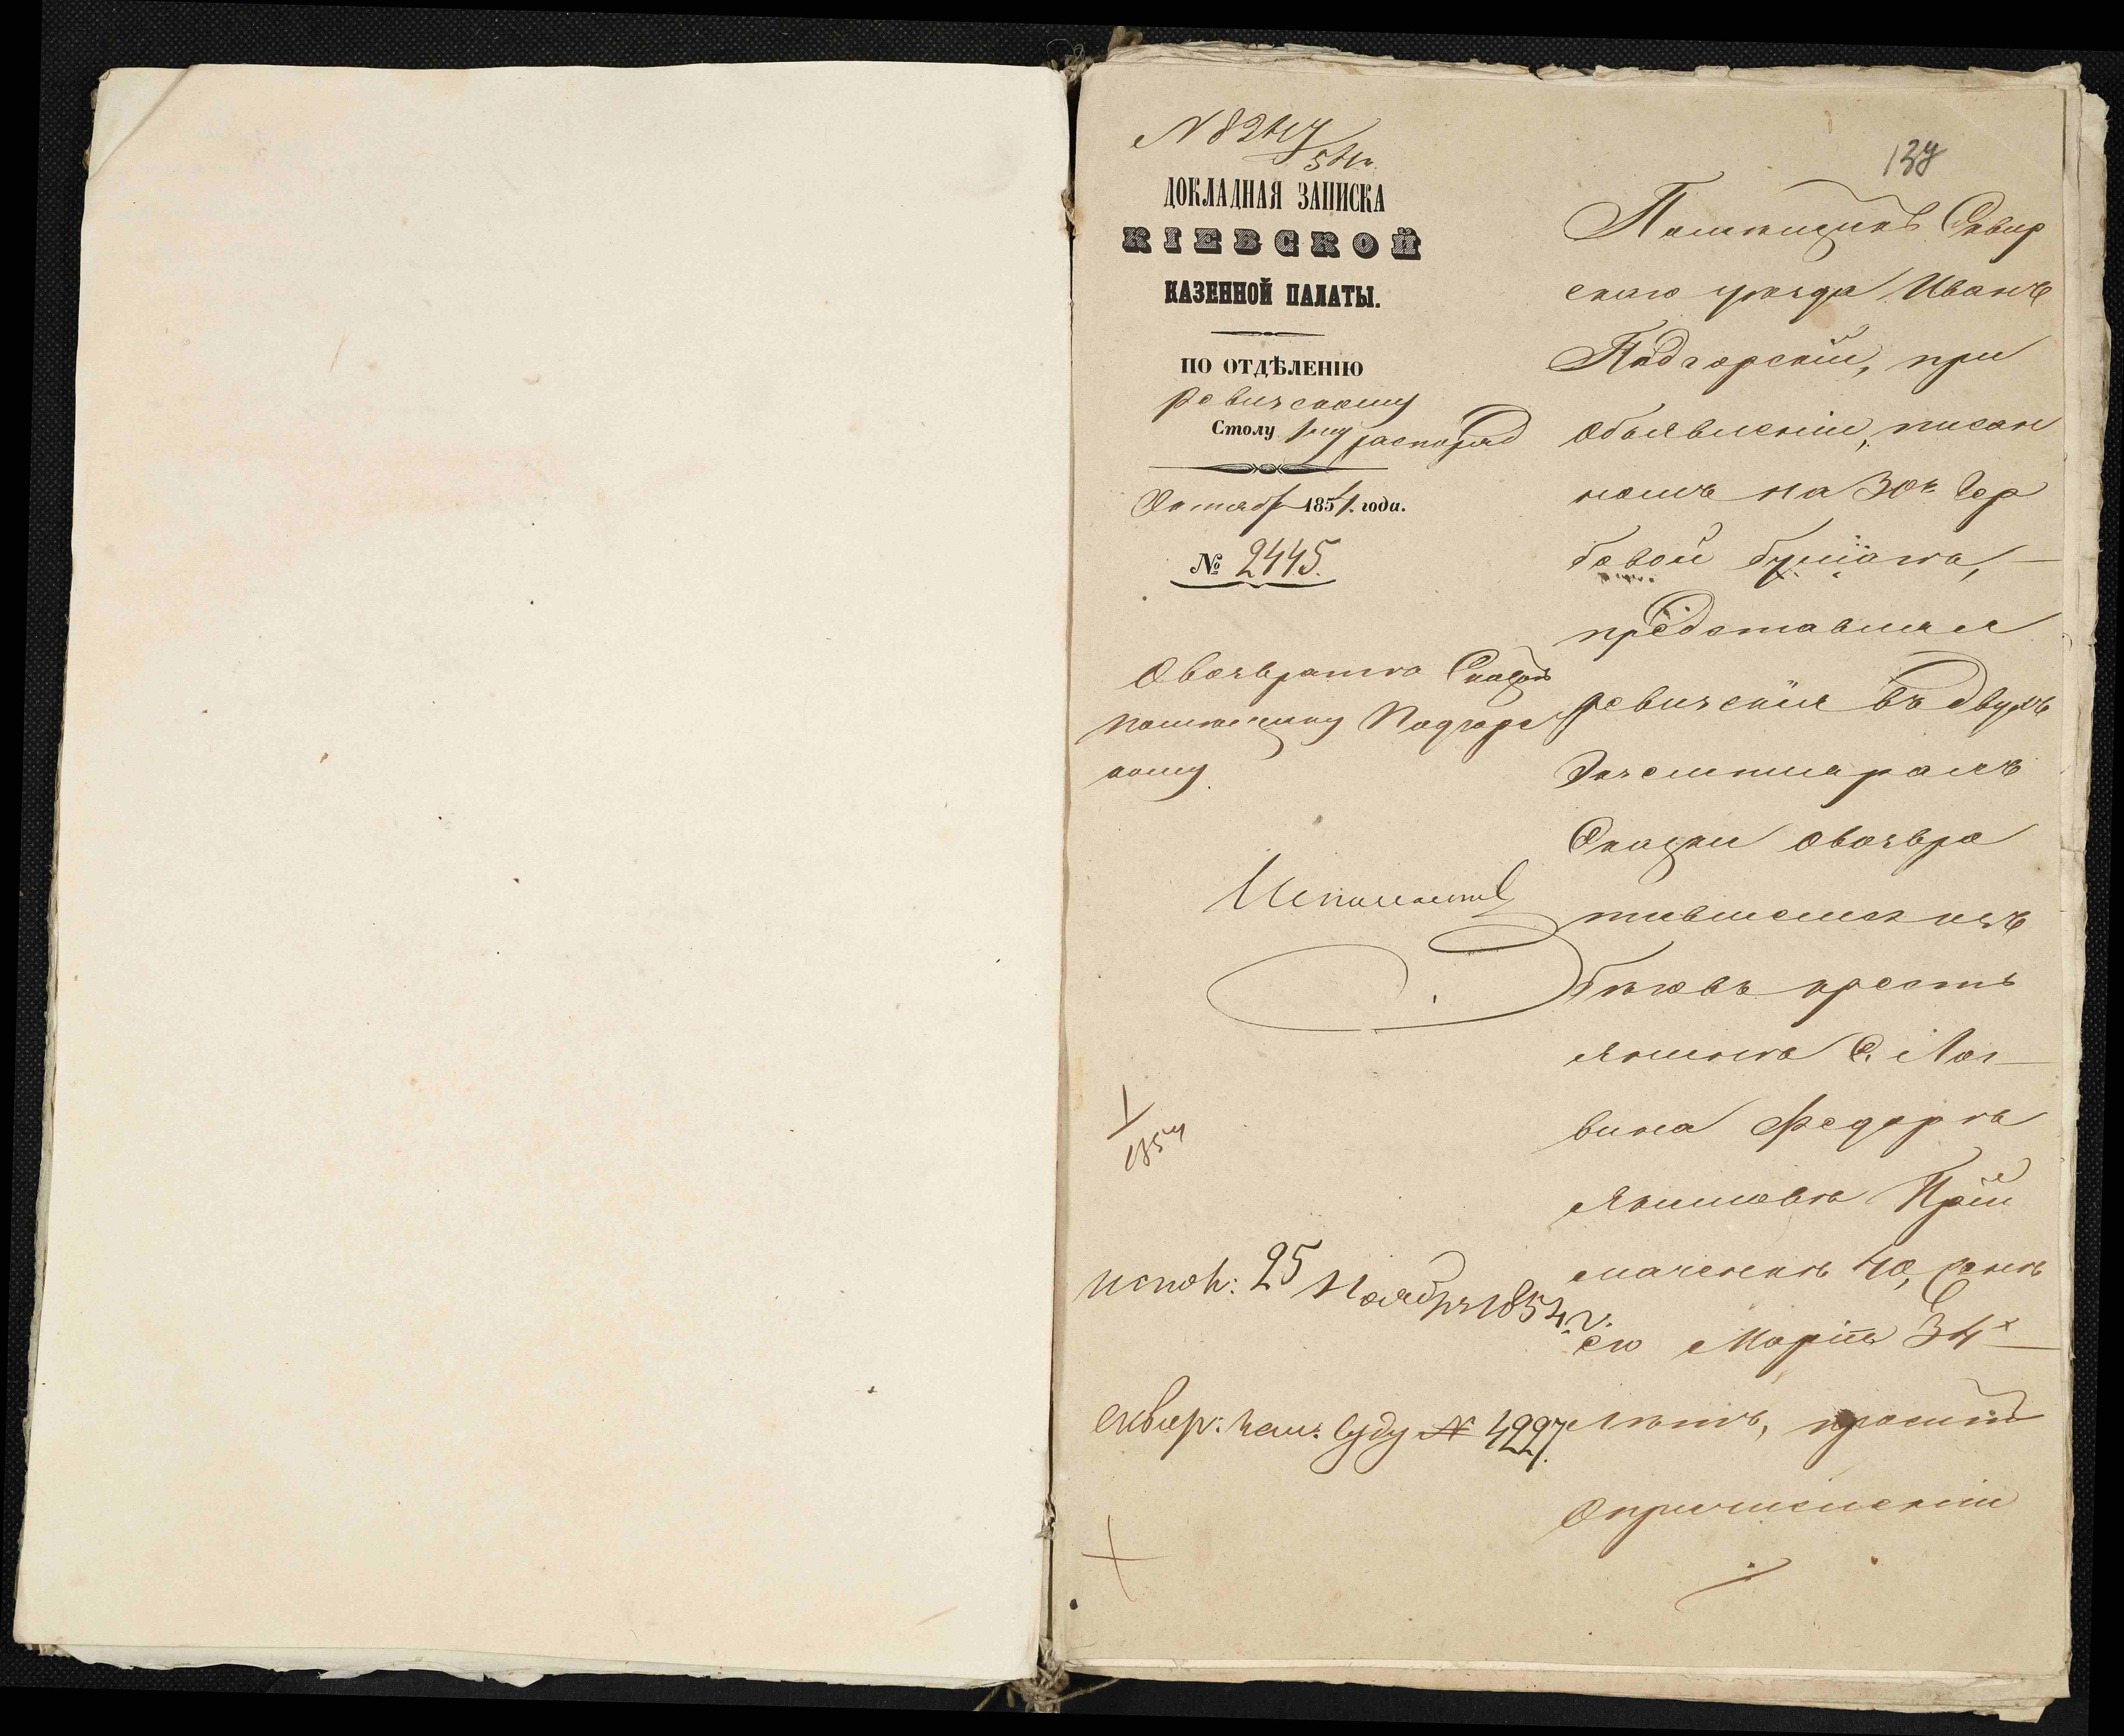 N 8247
ДОКЛАДНАЯ ЗАПИСКА
КІЕВСКОЙ
КАЗЕННОЙ ПАЛАТЫ.
ПО ОТДѢЛЕНІЮ
ревизскому
Столу 1му распоряд
Октября 1854. года.
№ 2445.
О возвратѣ Сказок
помѣщику Подгорс
кому
Исполнить
1
1854
испол: 25 Ноября 1854. г.
сквир: зем: суду № 4227.
Помѣщикъ Сквир
скаго уѣзда Иванъ
Подгорскій, при
объявленіи, писан
номъ на 30к гер
бовой бумагѣ,
представляя
ревизскія въ двухъ
экземплярахъ
Сказки о возвра
тившемся изъ
бѣговъ кресть
янинѣ С. Лог
вина Федорѣ
Якимовѣ Прий
маченкѣ 40, женѣ
его Маріи 34х
лѣтъ, проситъ
о причисленіи